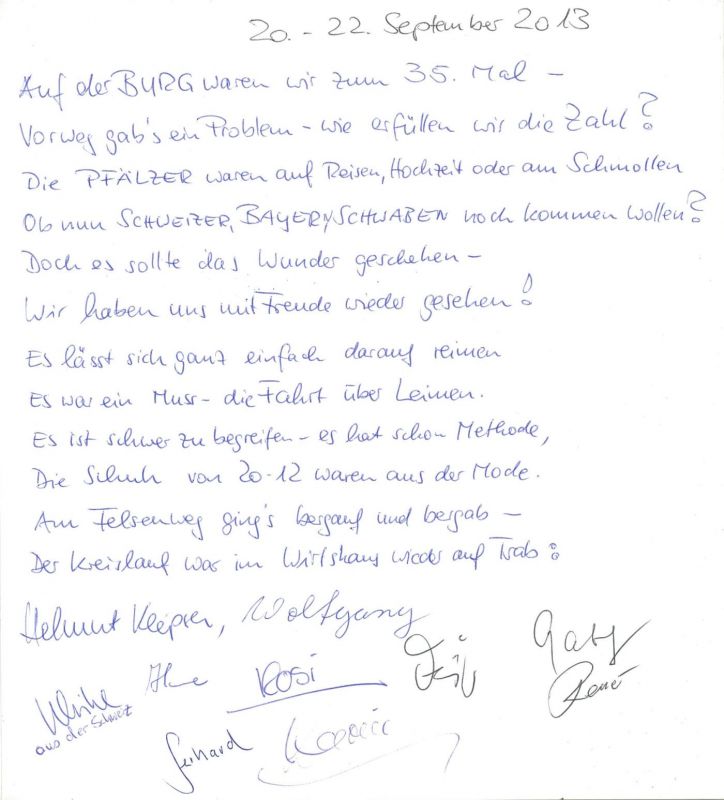 20. - 22. September 2013
Auf der BURG waren wir zum 35. Mal –
Vorweg gab's ein Problem - wie erfüllen wir die Zahl?
Die PFÄLZER waren auf Reisen, Hochzeit oder am Schmollen
Ob nun SCHWEIZER, BAYERN, SCHWABEN noch kommen wollen?
Doch es sollte das Wunder geschehen –
Wir haben uns mit Freude wieder gesehen!
Es lässt sich ganz einfach darauf reimen
Es war ein Muss - die Fahrt über Leimen.
Es ist schwer zu begreifen - es hat schon Methode,
Die Schuh von 20-12 waren aus der Mode.
Am Felsenweg ging's bergauf und bergab –
Der Kreislauf war im Wirtshaus wieder auf Trab!
Helmut Wolfgang
Gaby
René
Rosi
Ulrike
aus der Schweiz
Gerhard